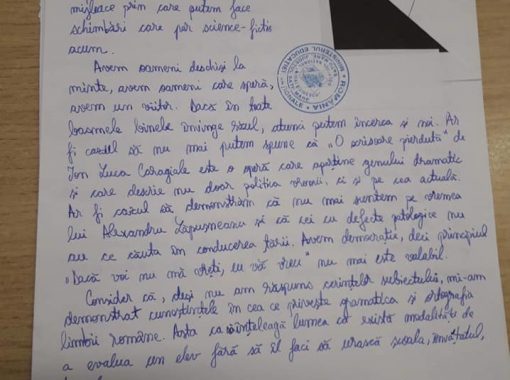 mijloace prin care putem face
schimbări care par science-fiction
acum.
Avem oameni deschiși la
minte, avem oameni care speră,
avem un viitor. Dacă în toate
basmele binele învinge răul, atunci putem încerca și noi. Ar
fi cazul să nu mai putem spune că „O scrisoare pierdută” de
Ion Luca Caragiale este o operă care aparține genului dramatic
și care descrie nu doar politica vremii, ci și pe cea actuală.
Ar fi cazul să demonstrăm că nu mai suntem pe vremea
lui Alexandru Lăpușneanu și că cei cu defecte patologice nu
au ce căuta în conducerea țării. Avem democrație, deci principiul
„Dacă voi nu mă vreți, eu vă vreu” nu mai este valabil.
Consider că, deși nu am răspuns cerințelor subiectului, mi-am
demonstrat cunoștințele în cea ce privește gramatica și ortografia
limbii române. Asta ca să înțeleagă lumea că există modalități de
a evalua un elev fără să îl faci să urască școala, învățatul,
ROMÂNIA
MINISTERUL EDUCAȚIEI
NAȚIONALE